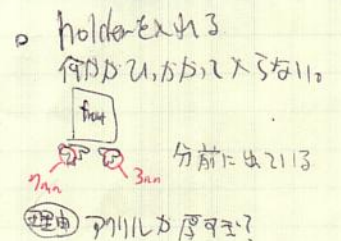 o holderを入れる
何かがひっかかって入らない。
front
7mm
3mm
分前に出ている
理由 アクリルが厚すぎ?